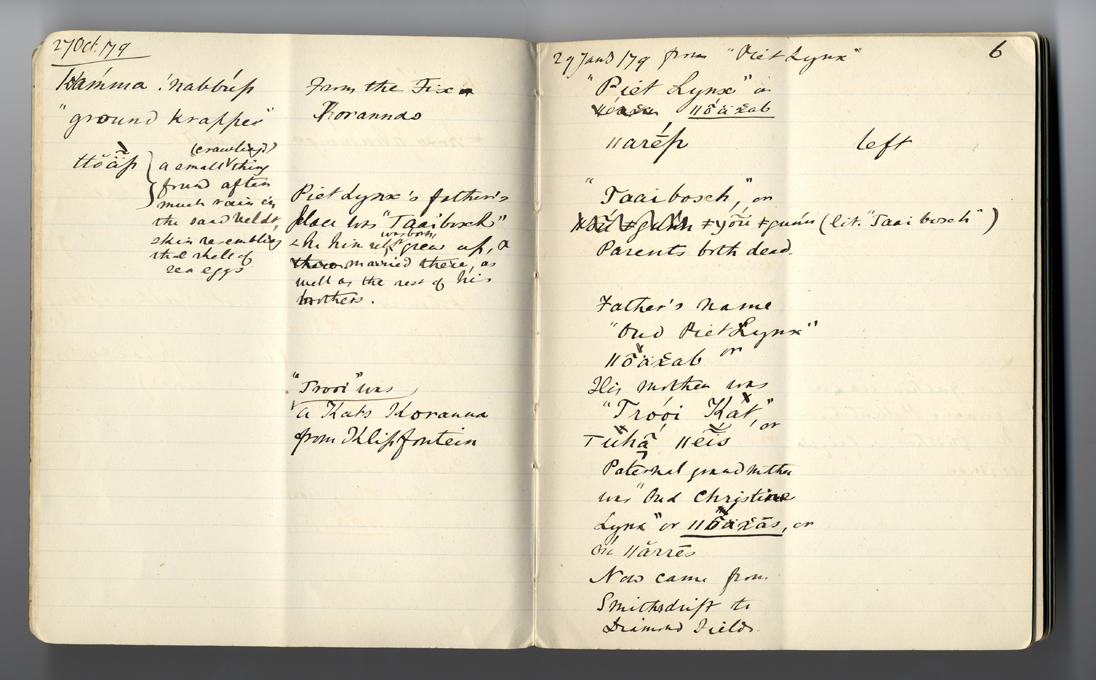 27 Oct. 79
"ground krapper"
(crawling)
a small thing
found after
much rain in
the sand veldt,
skin resembling
the shell of
sea eggs
From the
Korannas
Piet Lynx's father's
place was "Taaibosch"
he himself was born, grew up, &
married there, as
well as the rest of his
brothers.
"Trooi" was
a Kats Koranna
from Klipfontein
6
29 Jan 79 from "Piet Lynx"
"Piet Lynx" or
ǁõäχab
ǁarép left
"Taaibosch," or
ǂgunn (lit. "Taaibosch")
Parents both dead.
Father's name
"Oud Piet Lynx"
ǁõäχab or
His mother was
"Trooi Kat", or
ǁeis
Paternal grandmother
was "Oud Christine
Lynx" or ǁõäχas, or
ǁarrēs
Now came from
Smithsdrift to
Diamond Fields.